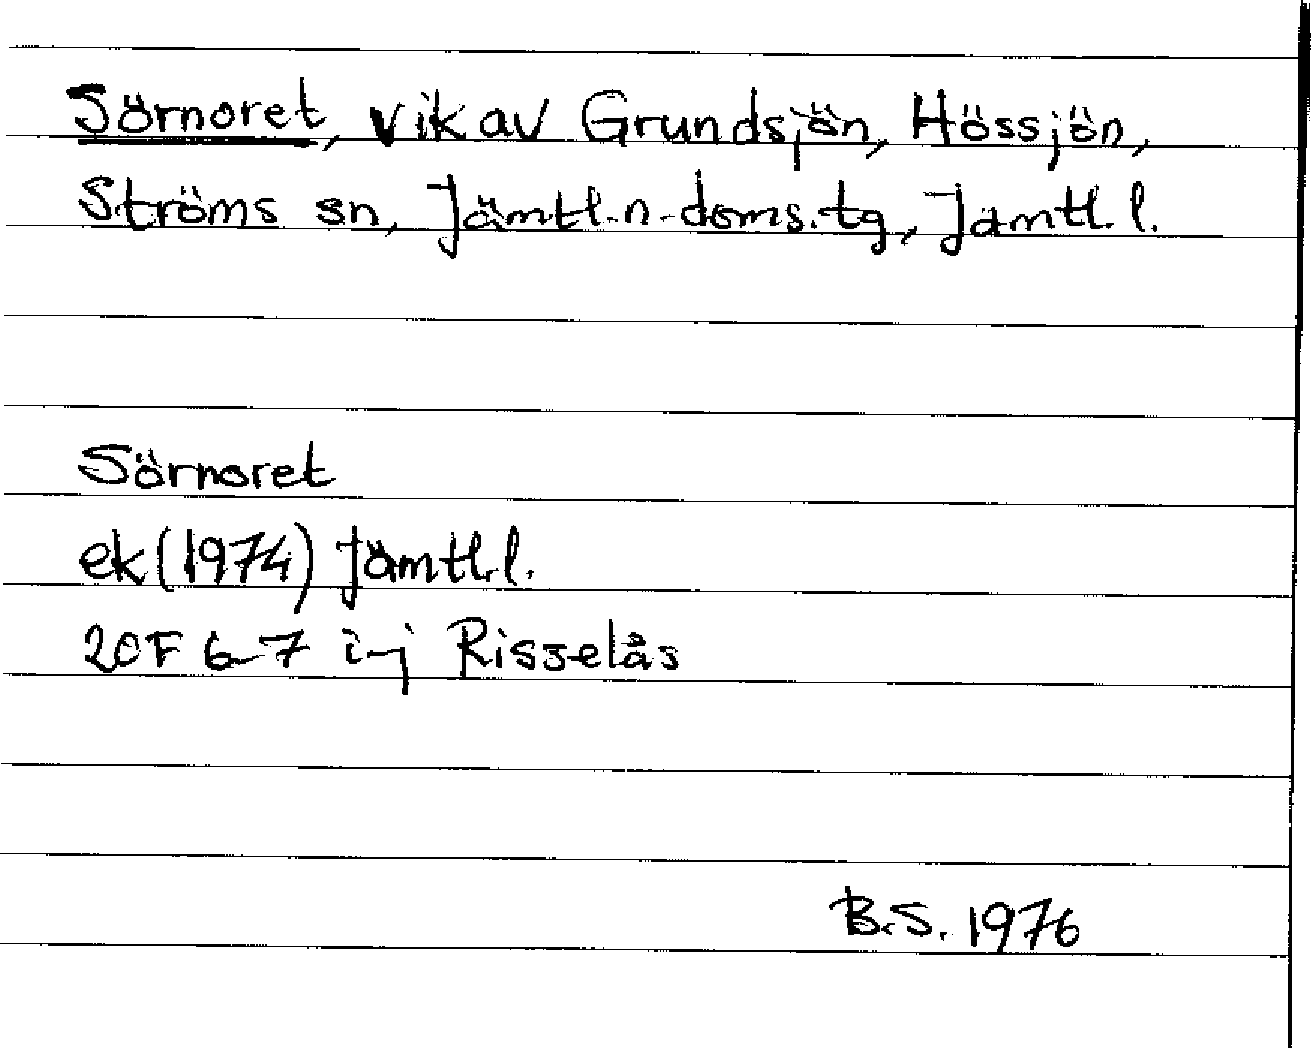 Sörnoret, vik av Grundsjön, Hössjön,
Ströms sn, Jämtl.n.doms.tg, Jämtl.l.
Sörnoret
ek (1974) Jämtl.l.
20F 6-7 i-j Risselås
B.S. 1976